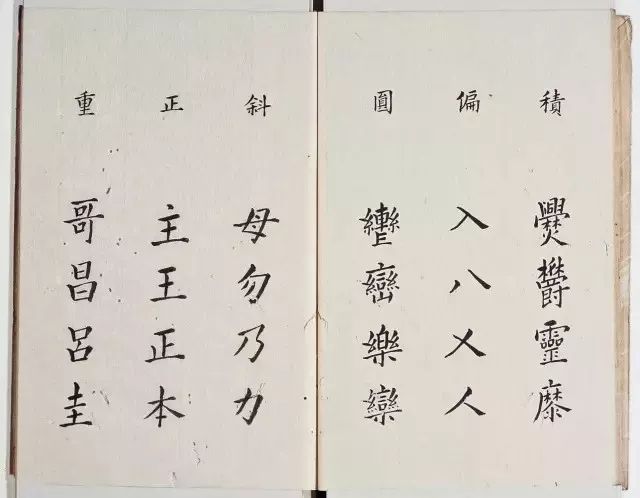 積 鬱靈
偏 入八乂人
圓 轡巒樂欒
斜 母勿乃力
正 主王正本
重 哥昌呂圭